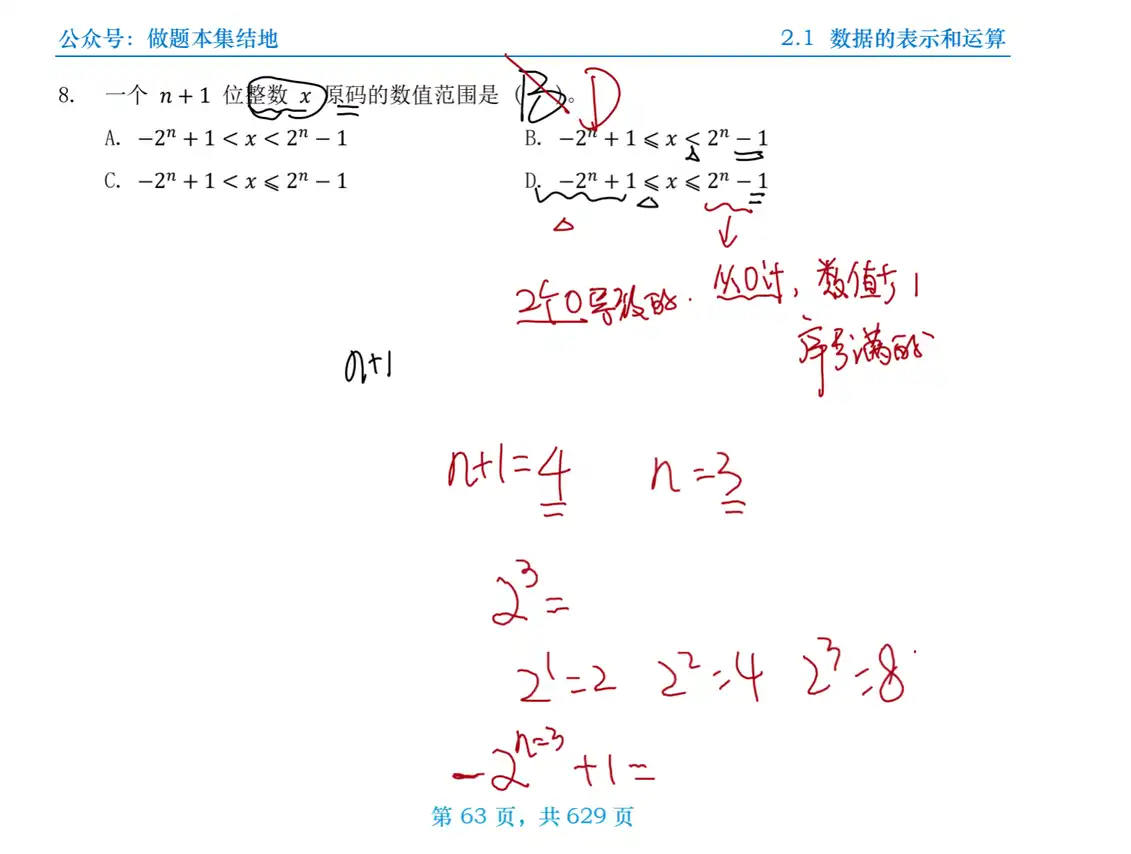 公众号：做题本集结地
2.1 数据的表示和运算
8. 一个 n + 1 位整数 x 原码的数值范围是（ ）。
B D
A. −2ⁿ + 1 < x < 2ⁿ − 1
B. −2ⁿ + 1 ⩽ x < 2ⁿ − 1
C. −2ⁿ + 1 < x ⩽ 2ⁿ − 1
D. −2ⁿ + 1 ⩽ x ⩽ 2ⁿ − 1
2个0导致的. 从0过, 数值少1
序号满的
n+1
n+1=4 n=3
2³=
2¹=2 2²=4 2³=8
−2ⁿ⁼³+1=
第 63 页，共 629 页